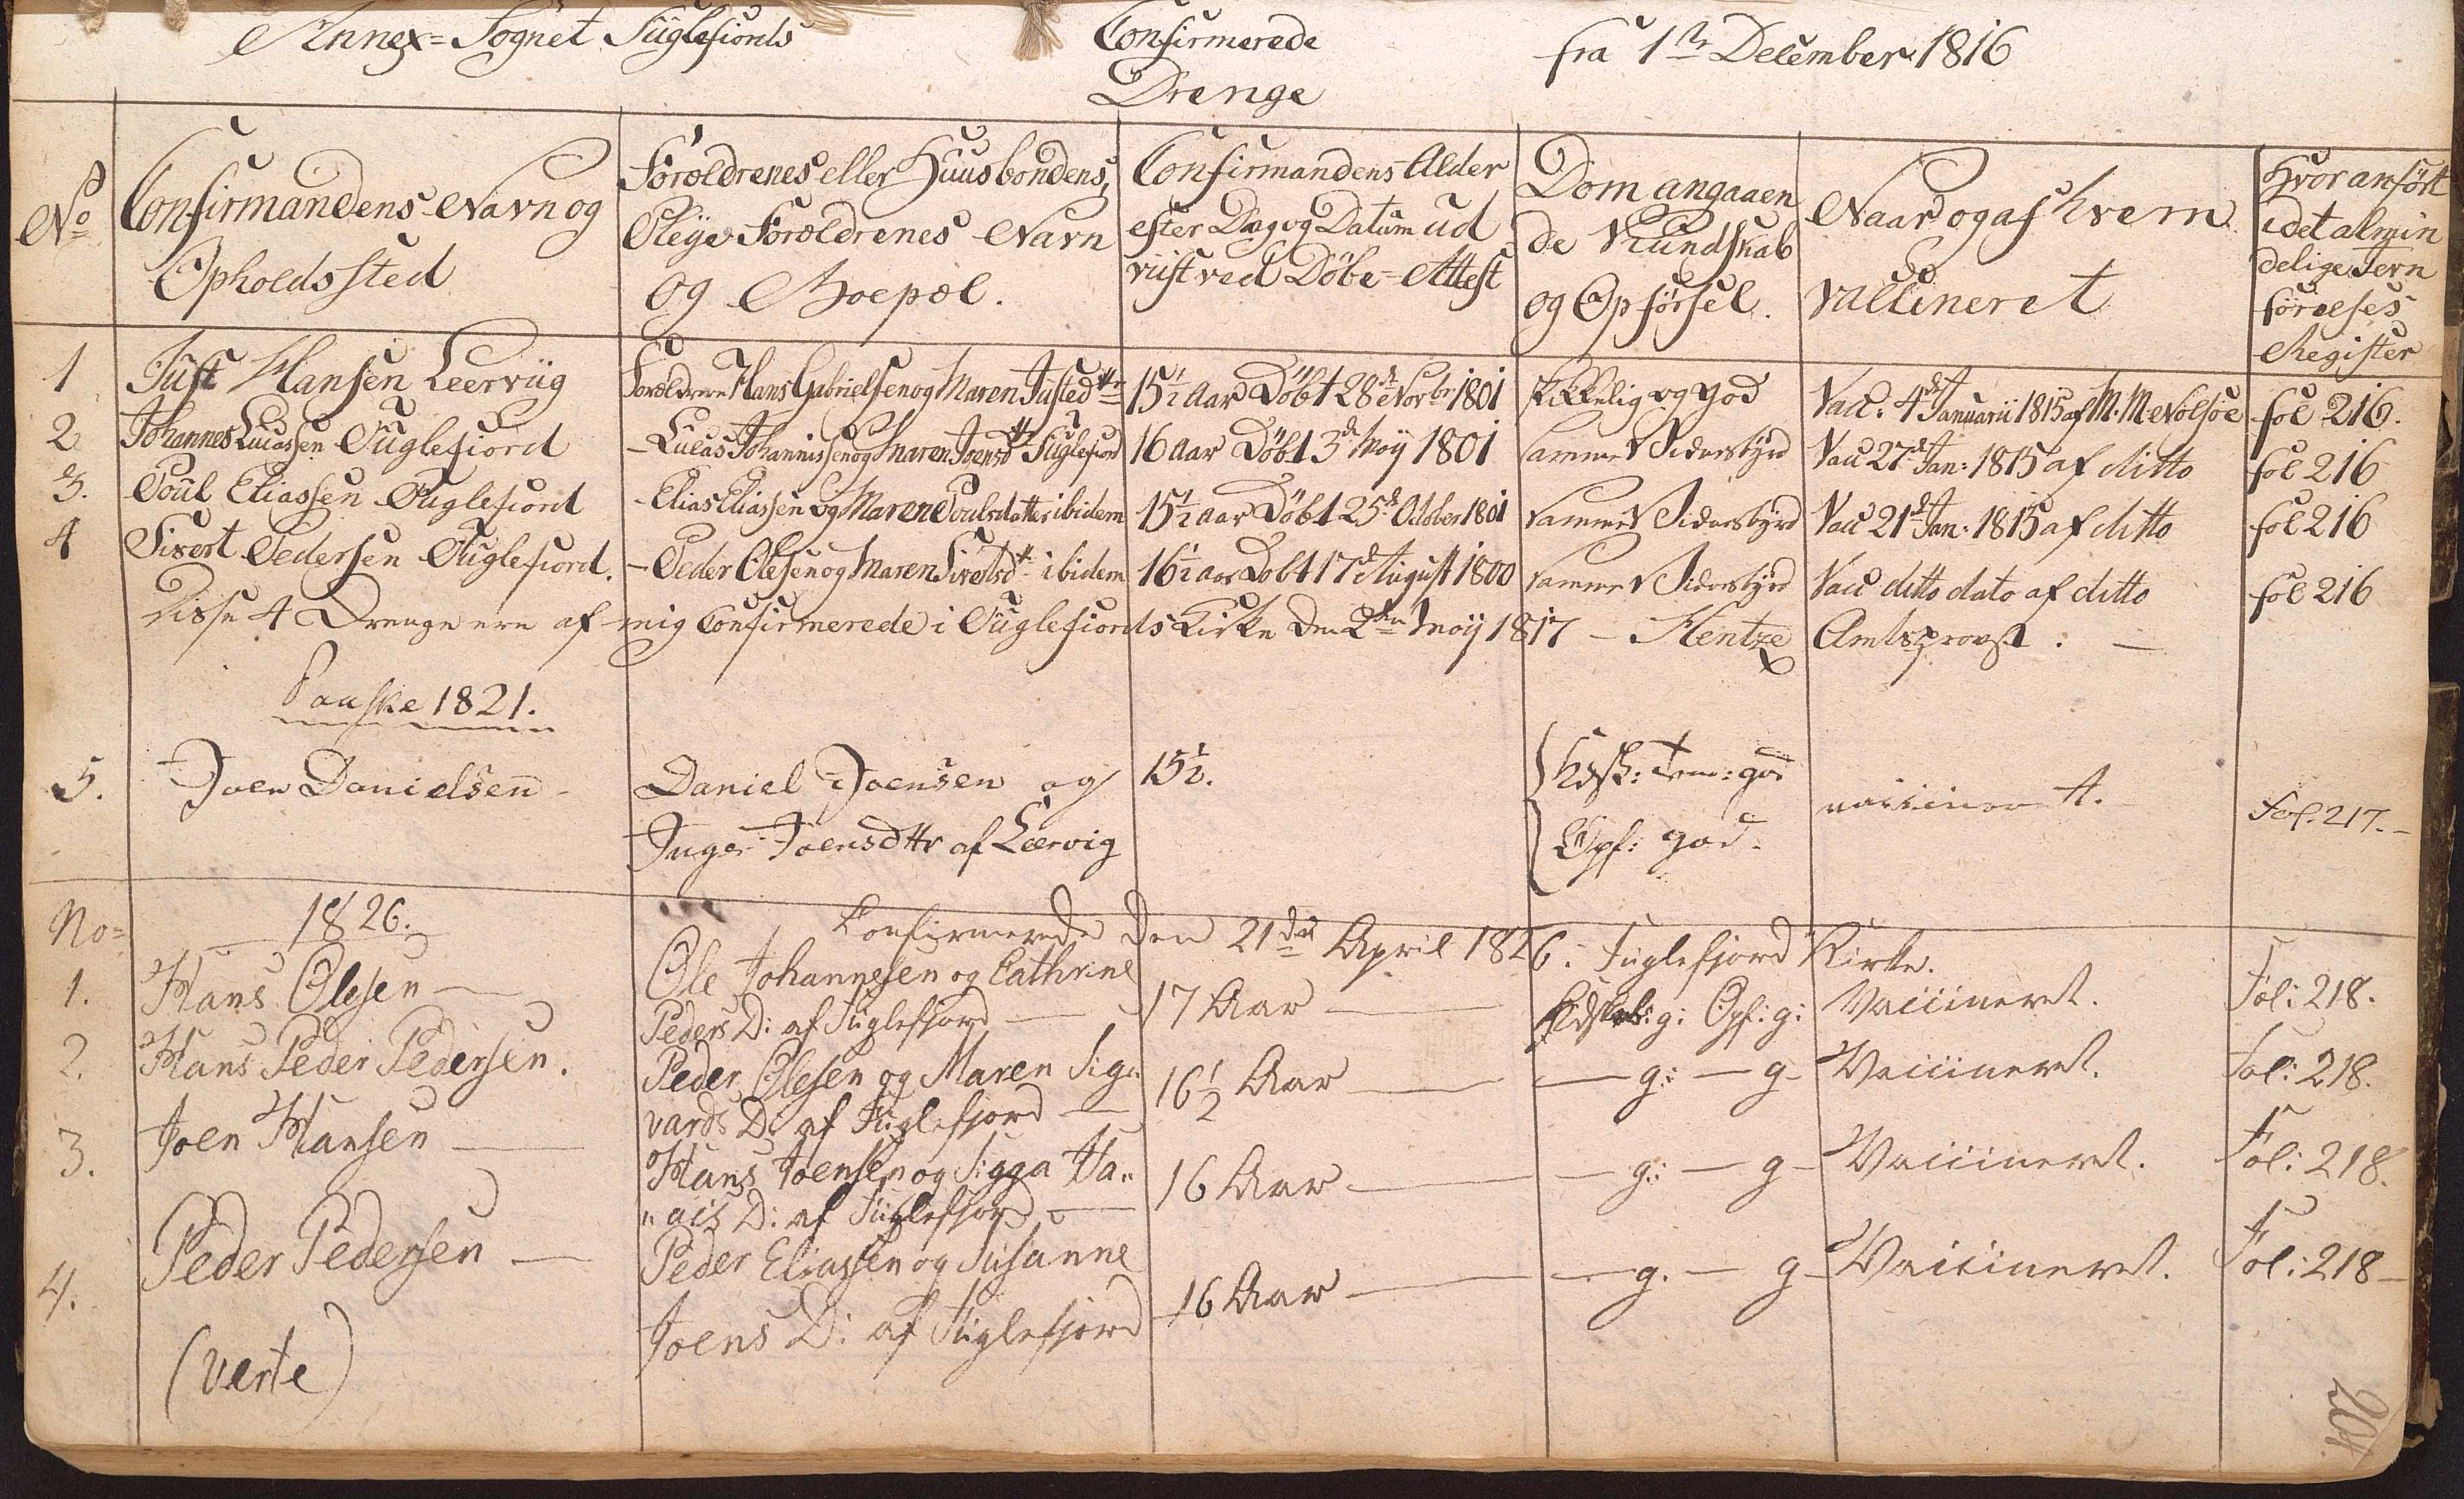 Annex=Sognet Fuglefiords Confirmerede fra 1ste December 1816
Drenge
No Confirmandens Navn og
Opholdssted
Forældrenes eller Huusbondens,
Pleye Forældrenes Navn
og Boepæl.
Confirmandens Alder
efter Dag og Datum ud
viist ved Döbe=Attest
Dom angaaen
de Kundskab
og Opförsel.
Naar og af hvem
vaccineret
Hvor anfört
i det almin
delige Jevn
förelses
Register
1 Just Hansen Leerviig Forældrene Hans Gabrielsen og Maren Justedttr 15½ Aar Döbt 28de Novbr 1801 skikkelig og god Vacc: 4de Januarii 1815 af M. M. Nolsöe fol 216.
2 Johannes Lucassen Fuglefiord – Lucas Johannissen og Maren Joensdttr Fuglefiord 16 aar Döbt 3de Maÿ 1801 samme Vidnesbyrd Vacc 27de Jan: 1815 af ditto fol 216
3. Poul Eliassen Fuglefiord - Elias Eliassen og Maren Poulsdatter ibidem 15½ aar Döbt 25de October 1801 samme Vidnesbyrd Vacc 21de Jan: 1815 af ditto fol 216
4 Sivert Pedersen Fuglefiord. – Peder Olesen og Maren Sivertsdttr ibidem 16½ aar Döbt 17de August 1800 samme Vidnesbyrd Vacc ditto dato af ditto fol 216
Disse 4 Drenge ere af mig Confirmerede i Fuglefiords Kirke den 2den Maÿ 1817 – Hentze Amtsprovst. —
Paaske 1821.
5. Joen Danielsen - Daniel Joensen og 15½. Kdsk: tem: god vaccineret. Fol. 217. –
Inger Joensdttr af Leervig Opf: god.
No= 1826. Confirmerede den 21de April 1826 i Fuglefjord Kirke.
1. Hans Olesen — Ole Johannesen og Cathrine
Peders D: af Fuglefjord — 17 Aar — Kdskab: g: Opf: g: Vaccineret. Fol: 218.
2. Hans Peder Pedersen. Peder Olesen og Maren Sig„
vards D: af Fuglefjord — 16½ Aar — — g: — g – Vaccineret. Fol: 218.
3. Joen Hansen — Hans Joensen og Sigga Ha„
„ais D: af Fuglefjord — 16 Aar — — g: — g – Vaccineret. Fol: 218.
4. Peder Pedersen — Peder Eliassen og Susanne
Joens D: af Fuglefjord 16 Aar — — g. — g – Vaccineret. Fol: 218 –
(verte)
204.